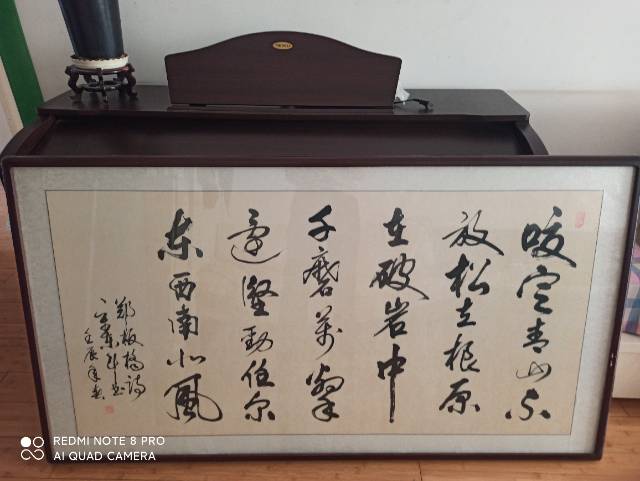 咬定青山不
放松立根原
在破岩中
千磨萬擊
還堅勁任尔
东西南北風
鄭板橋詩
壬辰年
REDMI NOTE 8 PRO
AI QUAD CAMERA